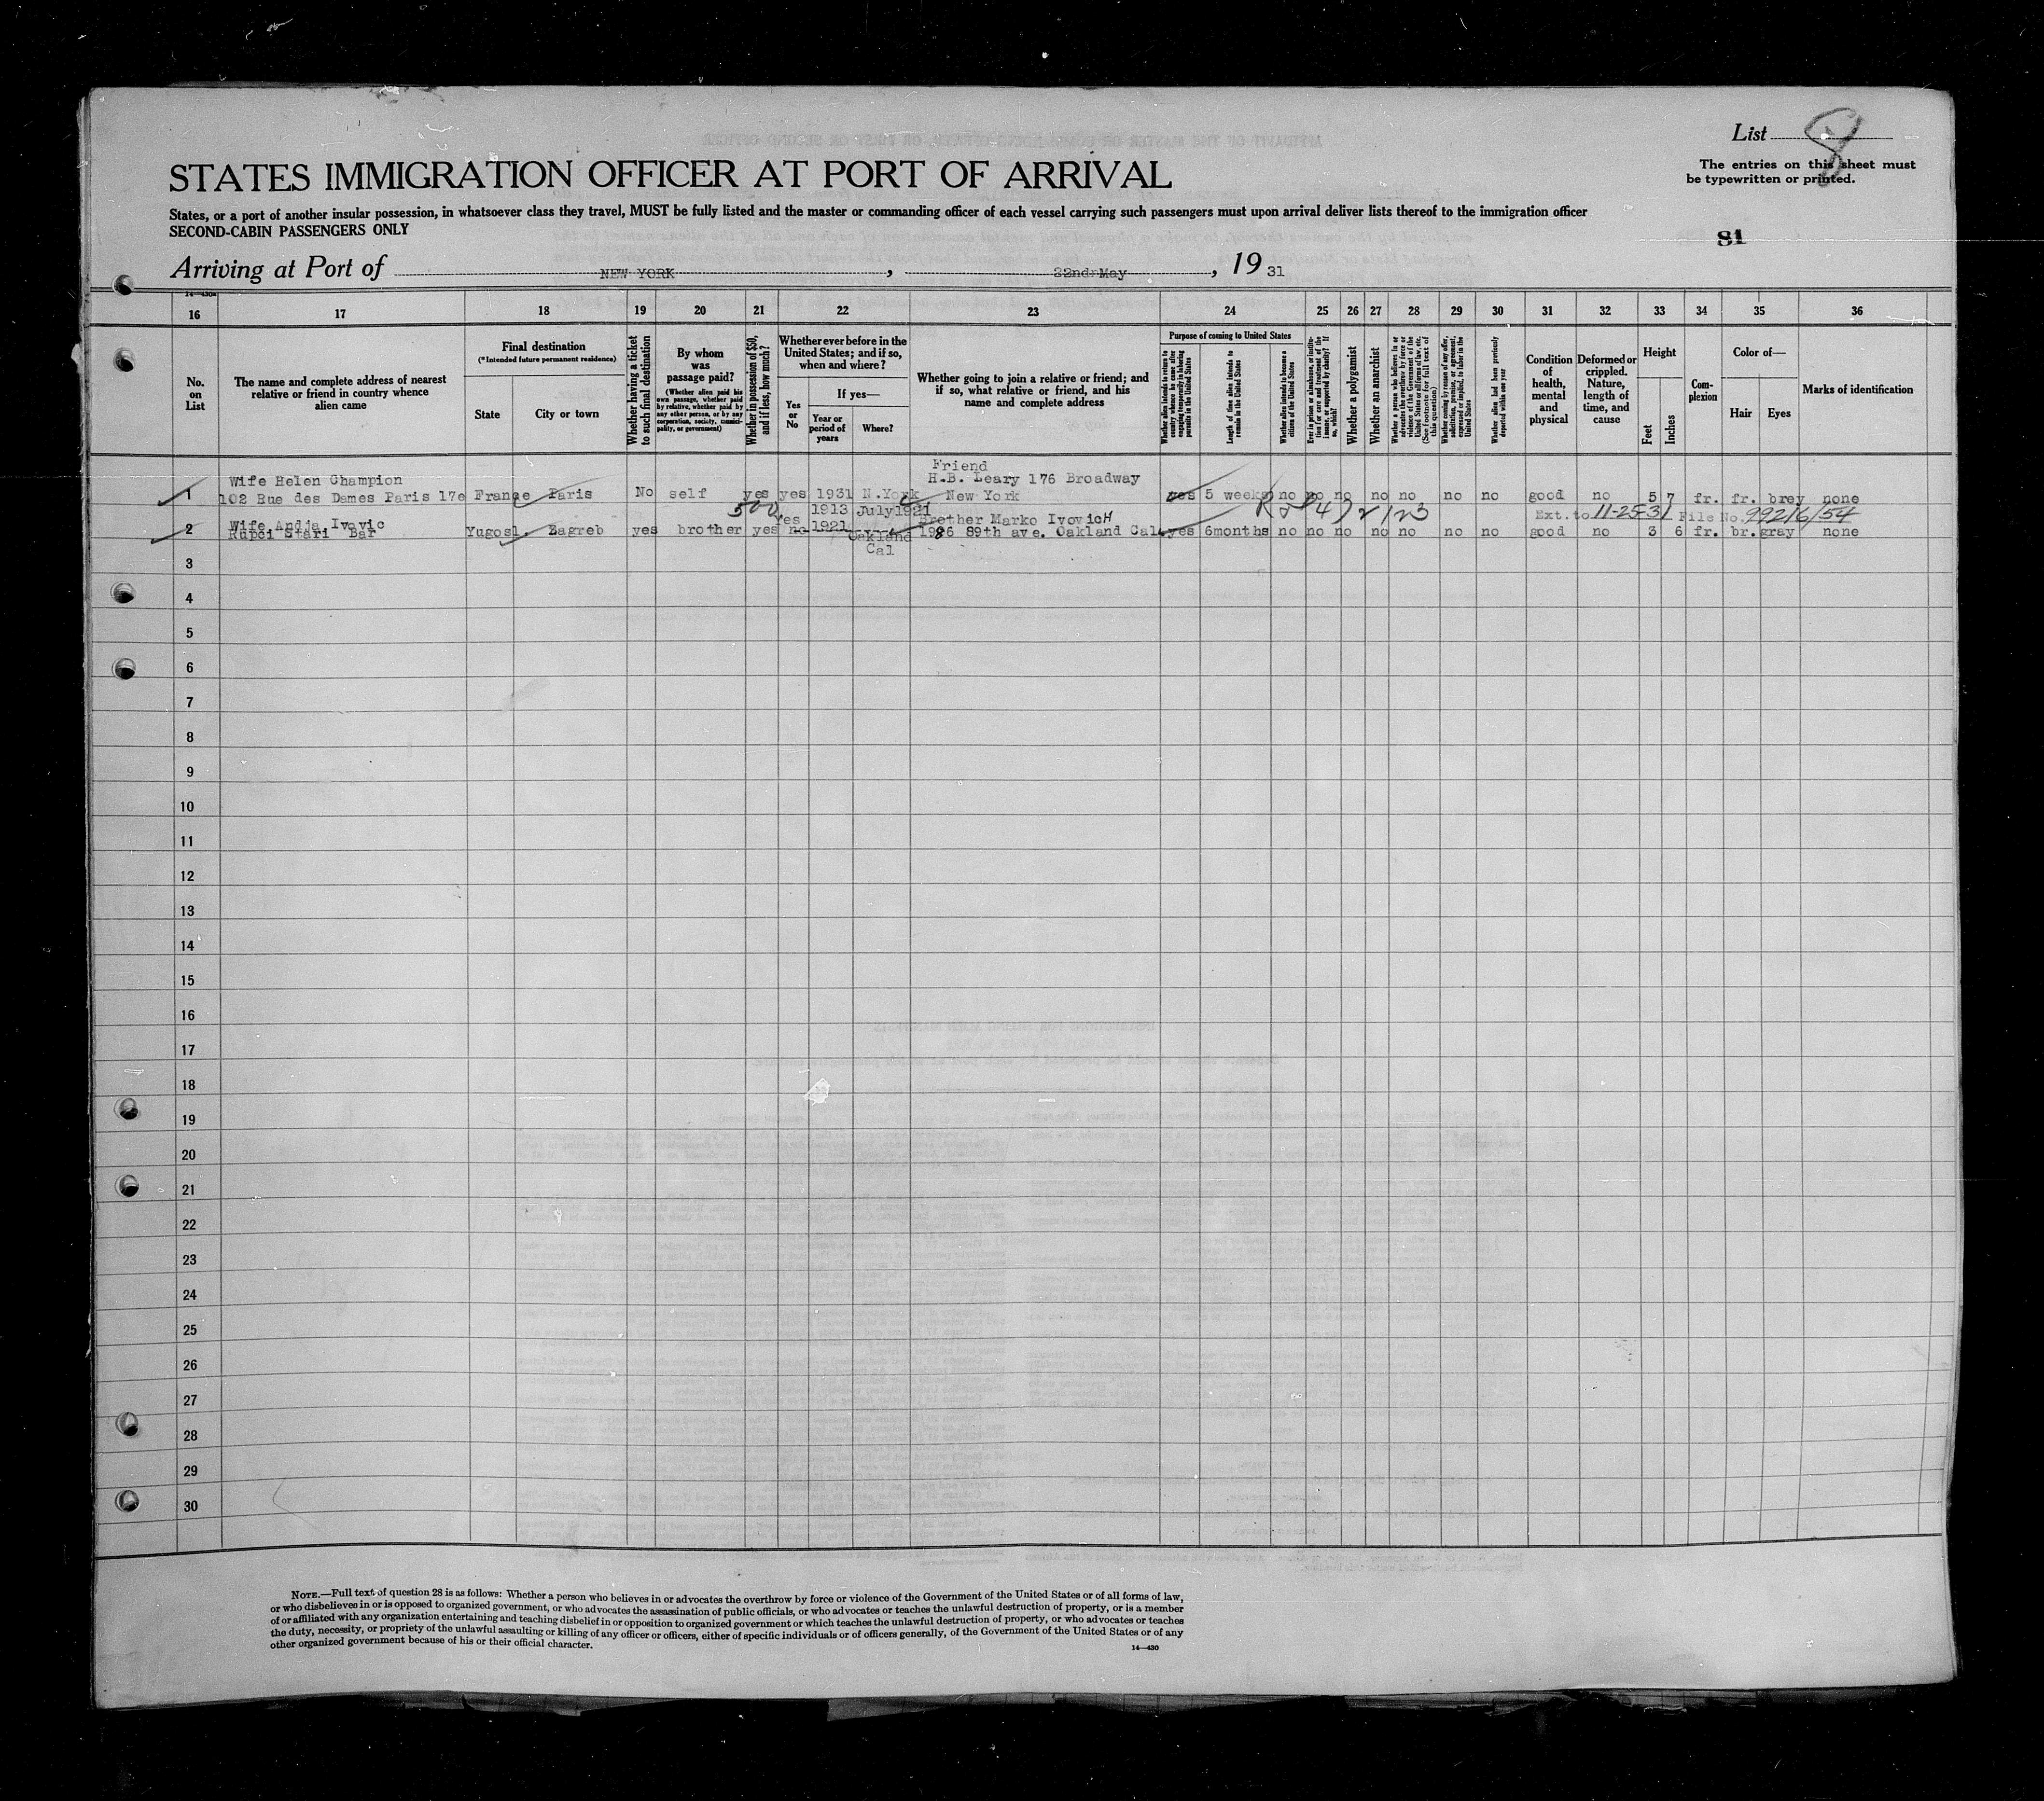 List 8
The entries on this sheet must
be typewritten or printed.
STATES IMMIGRATION OFFICER AT PORT OF ARRIVAL
States, or a port of another insular possession, in whatsoever class they travel, MUST be fully listed and the master or commanding officer of each vessel carrying such passengers must upon arrival deliver lists thereof to the immigration officer
SECOND-CABIN PASSENGERS ONLY
81
Arriving at Port of NEW YORK, 22nd May, 19 31
14-430a
16 17 18 19 20 21 22 23 24 25 26 27 28 29 30 31 32 33 34 35 36
No.
on
List
The name and complete address of nearest
relative or friend in country whence
alien came
Final destination
(*Intended future permanent residence)
State
City or town
Whether having a ticket
to such final destination
By whom
was
passage paid?
(Whether alien paid his
own passage, whether paid
by relative, whether paid by
any other person, or by any
corporation, society, munici-
pality, or government)
Whether in possession of $50,
and if less, how much?
Whether ever before in the
United States; and if so,
when and where?
Yes
or
No
If yes—
Year or
period of
years
Where?
Whether going to join a relative or friend; and
if so, what relative or friend, and his
name and complete address
Purpose of coming to United States
Whether alien intends to return to
country whence he came after
engaging temporarily in laboring
pursuits in the United States
Length of time alien intends to
remain in the United States
Whether alien intends to become a
citizen of the United States
Ever in prison or almshouse, or institu-
tion for care and treatment of the
insane, or supported by charity? If
so, which?
Whether a polygamist
Whether an anarchist
Whether a person who believes in or
advocates the overthrow by force or
violence of the Government of the
United States or all forms of law, etc.
(See footnote for full text of
this question)
Whether coming by reason of any offer,
solicitation, promise, or agreement,
expressed or implied, to labor in the
United States
Whether alien had been previously
deported within one year
Condition
of
health,
mental
and
physical
Deformed or
crippled.
Nature,
length of
time, and
cause
Height
Feet
Inches
Com-
plexion
Color of—
Hair
Eyes
Marks of identification
Wife Helen Champion
Friend
H.B. Leary 176 Broadway
1 102 Rue des Dames Paris 17e France Paris No self yes yes 1931 N.York New York yes 5 weeks no no no no no no no good no 5 7 fr. fr. brey none
500 1913 July1921
Ext. to 11-25-31 File No. 99216/54
Wife Andja Ivovic Yes 1921 Brother Marko IvovicH
2 Rupci Stari Bar Yugosl. Zagreb yes brother yes no 1986 89th ave. Oakland Cal. yes 6months no no no no no no no good no 3 6 fr. br. gray none
Oakland
Cal
3
4
5
6
7
8
9
10
11
12
13
14
15
16
17
18
19
20
21
22
23
24
25
26
27
28
29
30
NOTE.—Full text of question 28 is as follows: Whether a person who believes in or advocates the overthrow by force or violence of the Government of the United States or of all forms of law,
or who disbelieves in or is opposed to organized government, or who advocates the assassination of public officials, or who advocates or teaches the unlawful destruction of property, or is a member
of or affiliated with any organization entertaining and teaching disbelief in or opposition to organized government or which teaches the unlawful destruction of property, or who advocates or teaches
the duty, necessity, or propriety of the unlawful assaulting or killing of any officer or officers, either of specific individuals or of officers generally, of the Government of the United States or of any
other organized government because of his or their official character.
14—430